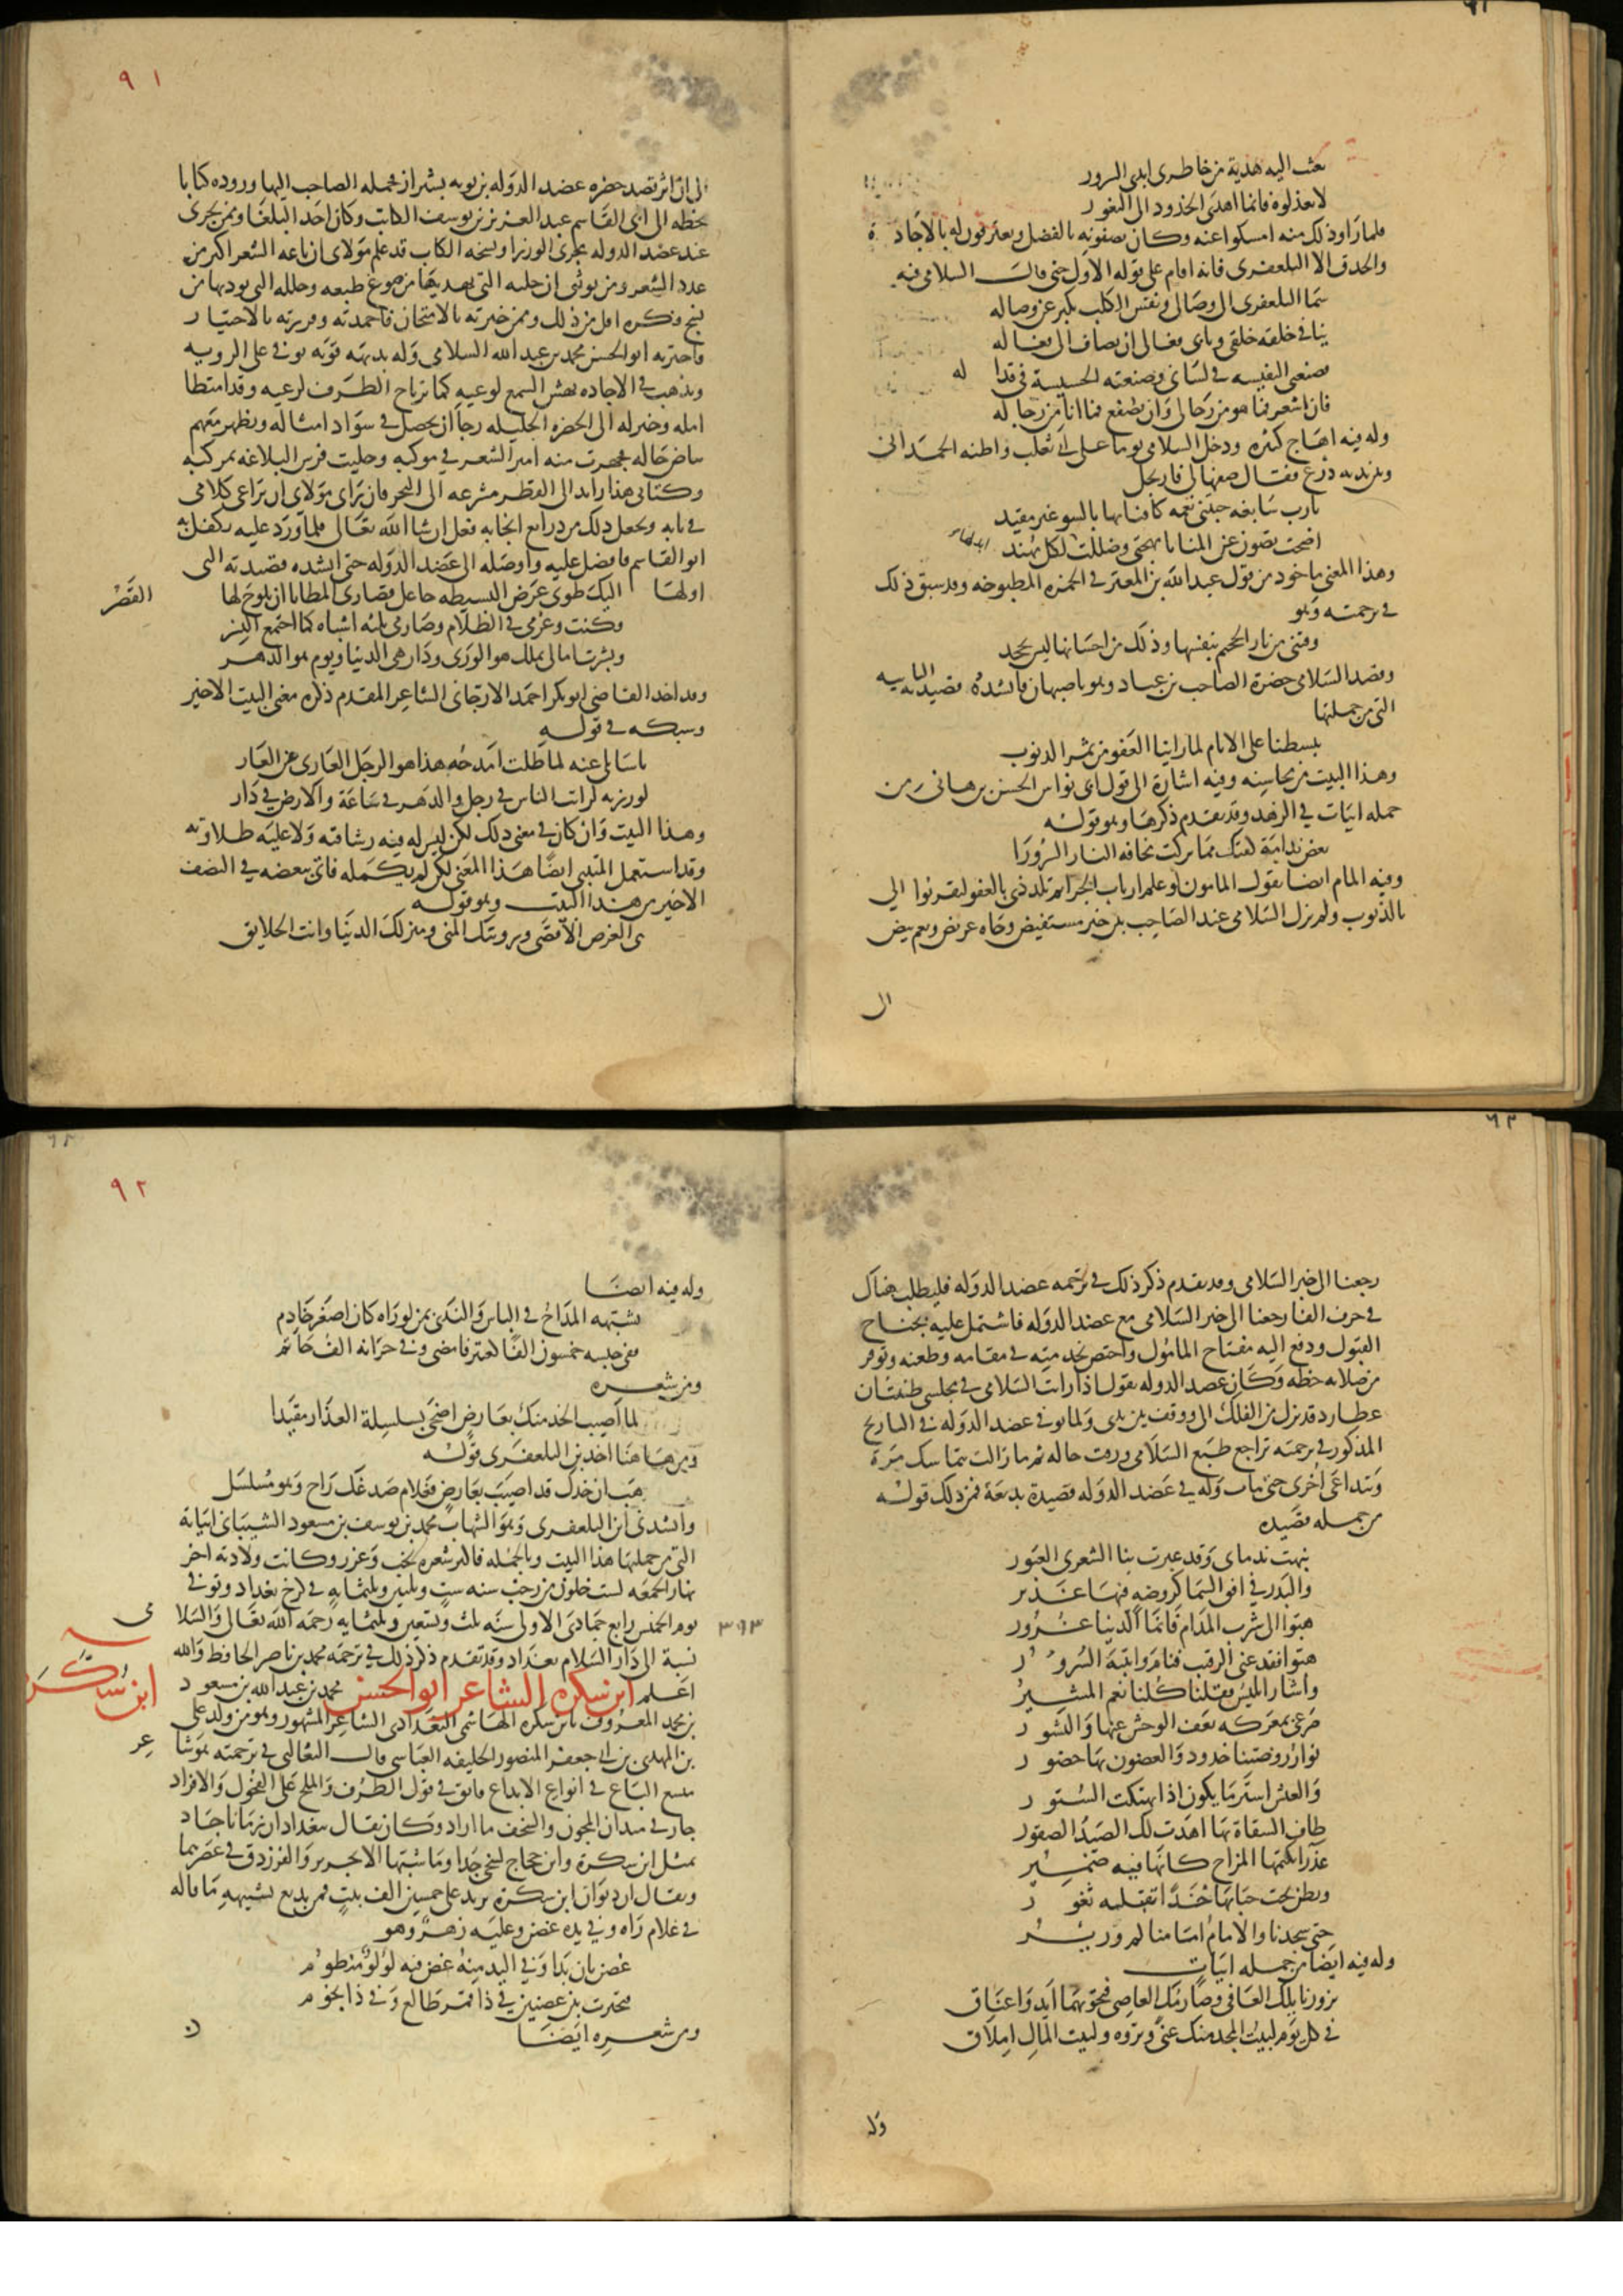 بعث اليه هدية من خاطرى ايدى السرور
لا تعذلوه فانما اهدى الخدود الى الثغور
فلما راوا ذلك منه امسكوا عنه وكان يصفونه بالفضل ويعترفون له بالاجادة
والحذق الا التلعفرى فانه اقام على قوله الاول حتى قال السلامى فيه
سما التلعفرى الى وصالى ونفس الكلب تكبر عن وصاله
ينافى خلقه خلقى وتابى فعالى ان تضاف الى فعاله
فصنعتى النفيسه فى لسانى وصنعته الخسيسة فى قذاله
فان اشعر فما هو من رجالى وان يصفع فما انا من رجاله
وله فيه اهاج كثيره ودخل السلامى يوما على ابى ثعلب واظنه الحمدانى
وبين يديه درع فقال صفها لى فارتجل
يا رب سابغه حبتنى نعمه كافاتها بالسوء غير مفيد
اضحت تصون عن المنايا مهجتى وظللت ابذلها لكل مهند
وهذا المعنى ماخوذ من قول عبد الله بن المعتز فى الخمره المطبوخه وقد سبق ذلك
فى ترجمته وهو
وقتنى من نار الجحيم بنفسها وذلك من احسانها ليس يجحد
وقصد السلامى حضرة الصاحب بن عباد وهو باصبهان فانشده قصيدته البائيه
التى من جملتها
تبسطنا على الاثام لما راينا العفو من ثمر الذنوب
وهذا البيت من محاسنه وفيه اشارة الى قول ابى نواس الحسن بن هانى من
جمله ابيات فى الزهد وقد تقدم ذكرها وهو قوله
تعض ندامة كفيك مما تركت مخافه النار السرورا
وفيه المام ايضا بقول المامون لو علم ارباب الجرائم تلذذى بالعفو لتقربوا الى
بالذنوب ولم يزل السلامى عند الصاحب بين خير مستفيض وجاه عريض ونعم بيض
الى
٩١
الى ان اثر قصد حضره عضد الدوله بن بويه بشيراز فحمله الصاحب اليها وزوده كتابا
بخطه الى ابى القاسم عبد العزيز بن يوسف الكاتب وكان احد البلغا وممن يجرى
عند عضد الدوله مجرى الوزرا ونسخه الكتاب قد علم مولاى ان باعه الشعر اكثر من
عدد الشعر ومن يوثق ان حليته التى يهديها من صوغ طبعه وحلله التى يوديها من
نسج فكره اقل من ذلك وممن خبرته بالامتحان فاحمدته وفررته بالاختيار
فاخترته ابو الحسن محمد بن عبد الله السلامى وله بديهه قويه توفى على الرويه
ومذهب فى الاجاده يهش السمع لوعيه كما يرتاح الطرف لرعيه وقد امتطا
امله وخير له الى الحضره الجليله رجا ان يحصل فى سواد امثاله ويظهر معهم
بياض حاله فجهزت منه امير الشعر فى موكبه وحليت فرس البلاغه بمركبه
وكتابى هذا رائده الى القطر بل مشرعه الى البحر فان راى مولاى ان يراعى كلامى
فى بابه ويجعل ذلك من ذرائع ايجابه فعل ان شا الله تعالى فلما ورد عليه تكفل به
ابو القاسم وافضل عليه واوصله الى عضد الدوله حتى انشده قصيدته التى
اولها اليك طوى عرض البسيطه جاعل قصارى المطايا ان يلوح لها القصر
وكنت وعزمى فى الظلام وصارمى ثلثه اشباه كما اجتمع النسر
وبشرت امالى بملك هو الورى ودار هى الدنيا ويوم هو الدهر
وقد اخذ القاضى ابو بكر احمد الارجانى الشاعر المقدم ذكره معنى البيت الاخير
وسبكه فى قوله
يا سائلى عنه لما ظلت امدحه هذا هو الرجل العارى عن العار
لو زرته لرايت الناس فى رجل والدهر فى ساعة والارض فى دار
وهذا البيت وان كان فى معنى ذلك لكن ليس له فيه رشاقته ولا عليه طلاوته
وقد استعمل المتنبى ايضا هذا المعنى لكن لم يكمله فاتى ببعضه فى النصف
الاخير من هذا البيت وهو قوله
هى الغرض الاقصى ورويتك المنى ومنزلك الدنيا وانت الخلايق
رجعنا الى خبر السلامى وقد تقدم ذكر ذلك فى ترجمه عضد الدوله فليطلب هناك
فى حرف الفا رجعنا الى خبر السلامى مع عضد الدوله فاشتمل عليه بجناح
القبول ودفع اليه مفتاح المامول واختص بخدمته فى مقامه وظعنه وتوفر
من صلاته حظه وكان عضد الدوله يقول اذا رايت السلامى فى مجلسى ظننت ان
عطارد قد نزل من الفلك الى ووقف بين يدى ولما توفى عضد الدوله فى التاريخ
المذكور فى ترجمته تراجع طبع السلامى ورقت حاله ثم ما زالت تتماسك مرة
وتتداعى اخرى حتى مات وله فى عضد الدوله قصيدة بديعة فمن ذلك قوله
من جمله قصيده
نبهت ندماى وقد عبرت بنا الشعرى العبور
والبدر فى افق السما كروضه فيها غدير
هبوا الى شرب المدام فانما الدنيا غرور
هبوا فقد عنى الرقيب فنام وانتبه السرور
واشار ابليس فقلنا كلنا نعم المشير
صرعى بمعركه تعف الوحش عنها والنسور
نوار روضتنا خدود والغصون بها خصور
والعيش استر ما يكون اذا تهتكت الستور
طاف السقاة بها كما اهدت لك الصيد الصقور
عذراء يكتمها المزاج كانها فيه ضمير
وتظن تحت حبابها خدا تقبله ثغور
حتى سجدنا والامام امامنا بم وزير
وله فيه ايضا من جمله ابيات
يزورنا نايلك العافى وصارمك العاصى فتحويهما ايد واعناق
فى كل يوم لبيت المجد منك غنى وثروه ولبيت المال املاق
وله
٩٢
وله فيه ايضا
تشبهه المداح فى الباس والندى بمن لو راه كان اصغر خادم
ففى جيشه خمسون الفا كعنتر فامضى وفى خزانه الف حاتم
ومن شعره
لما اصيب الخد منك بعارض اضحى بسلسلة العذار مقيدا
ومن هاهنا اخذ بن التلعفرى قوله
هب ان خدك قد اصيب بعارض فعلام صدغك راح وهو مسلسل
وانشدنى ابن التلعفرى وهو الشهاب محمد بن يوسف بن مسعود الشيبانى ابياته
التى من جملتها هذا البيت وبالجمله فاكثر شعره نخب وغرر وكانت ولادته اخر
نهار الجمعه لست خلون من رجب سنه ست وثلثين وثلثمايه فى كرخ بغداد وتوفى
يوم الخميس رابع جمادى الاولى سنه ثلث وتسعين وثلثمايه رحمه الله تعالى والسلامى
٣٩٣
نسبة الى دار السلام بغداد وقد تقدم ذكر ذلك فى ترجمه محمد بن ناصر الحافظ والله
اعلم ابن سكره الشاعر ابو الحسن محمد بن عبد الله بن مسعود
ابن سكره
بن محمد المعروف بابن سكره الهاشمى البغدادى الشاعر المشهور وهو من ولد على
بن المهدى بن ابى جعفر المنصور الخليفه العباسى قال الثعالبى فى ترجمته هو شاعر
متسع الباع فى انواع الابداع فايق فى قول الظرف والملح على الفحول والافراد
جار فى ميدان المجون والسخف ما اراد وكان يقال ببغداد ان زمانا جاد
بمثل ابن سكرة وابن حجاج لسخى جدا وما شبها الا بجرير والفرزدق فى عصرهما
ويقال ان ديوان ابن سكرة يربو على خمسين الف بيت فمن بديع تشبيهه ما قاله
فى غلام راه وفى يده غصن وعليه زهر وهو
غصن بان بدا وفى اليد منه غصن فيه لولو منظوم
فتحيرت بين غصنين فى ذا قمر طالع وفى ذا نجوم
ومن شعره ايضا